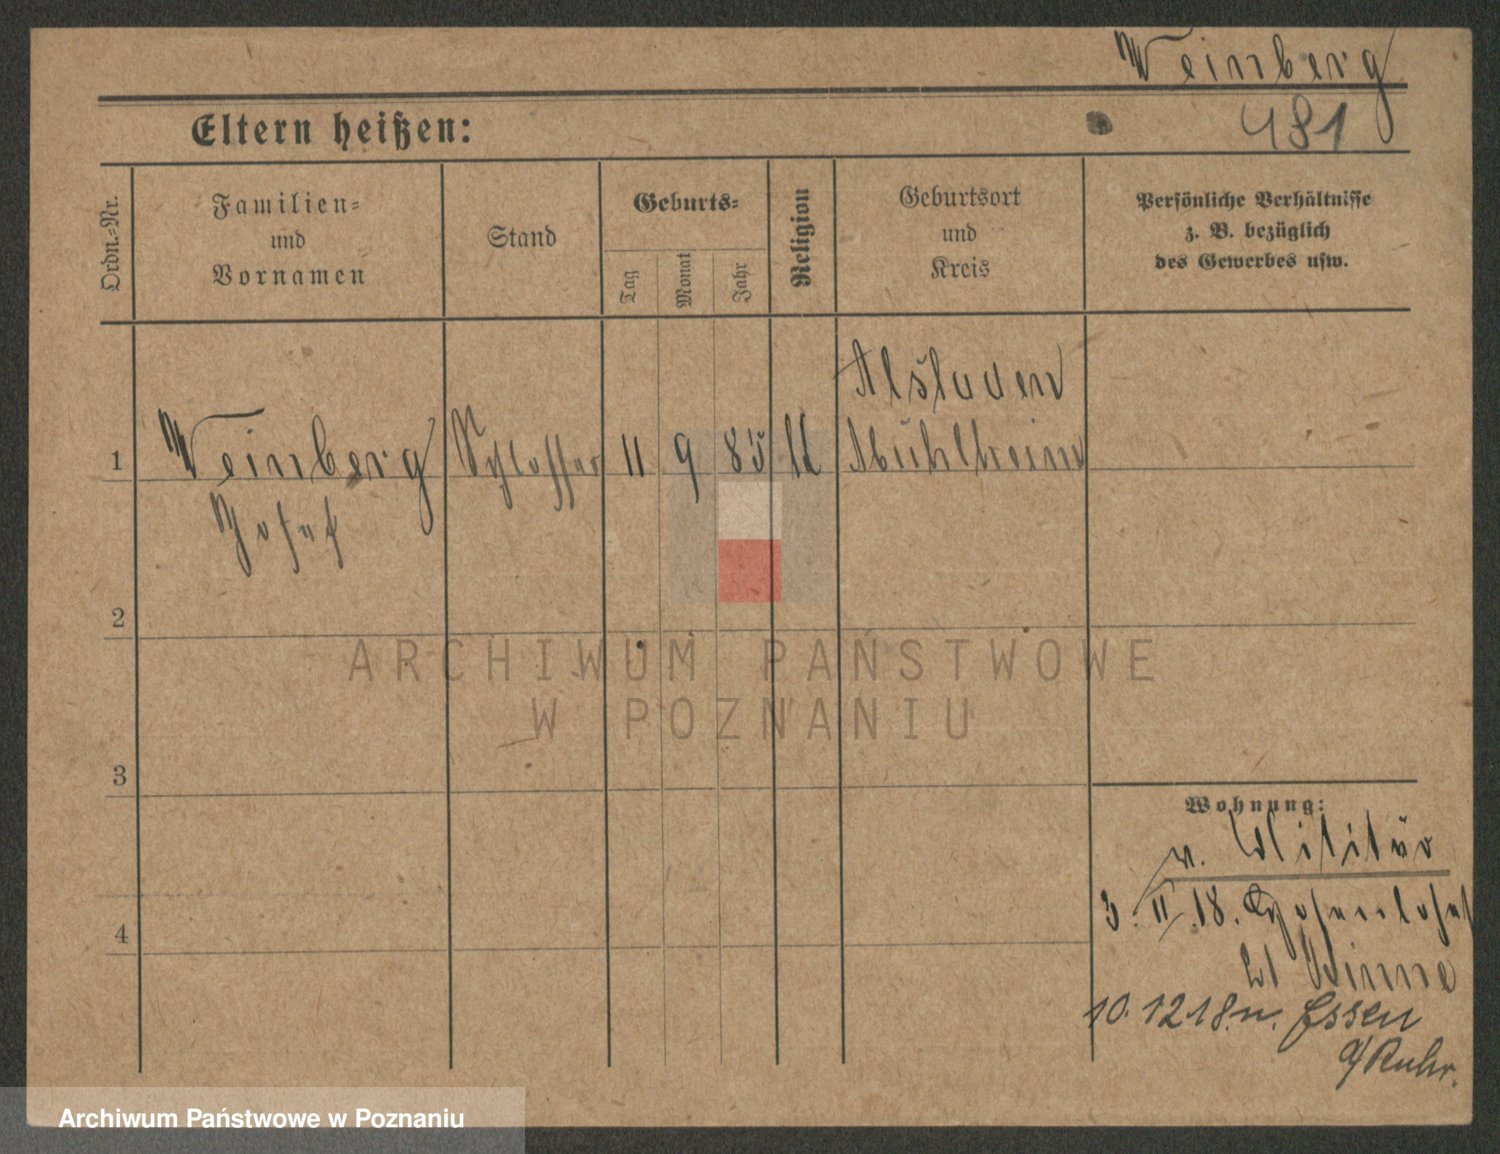 Weinberg
Eltern heißen:
481
Ordn.=Nr.
Familien=
und
Vornamen
Stand
Geburts=
Tag
Monat
Jahr
Religion
Geburtsort
und
Kreis
Persönliche Verhältnisse
z. B. bezüglich
des Gewerbes usw.
Alstaden
1 Weinberg Schlosser 11 9 85 Mühlheim
Josef
2
ARCHIWUM PAŃSTWOWE
W POZNANIU
3
Wohnung:
v. Militär
4
3. II. 18.
21 Binne
10. 12 18. n. Essen
a/Ruhr.
Archiwum Państwowe w Poznaniu